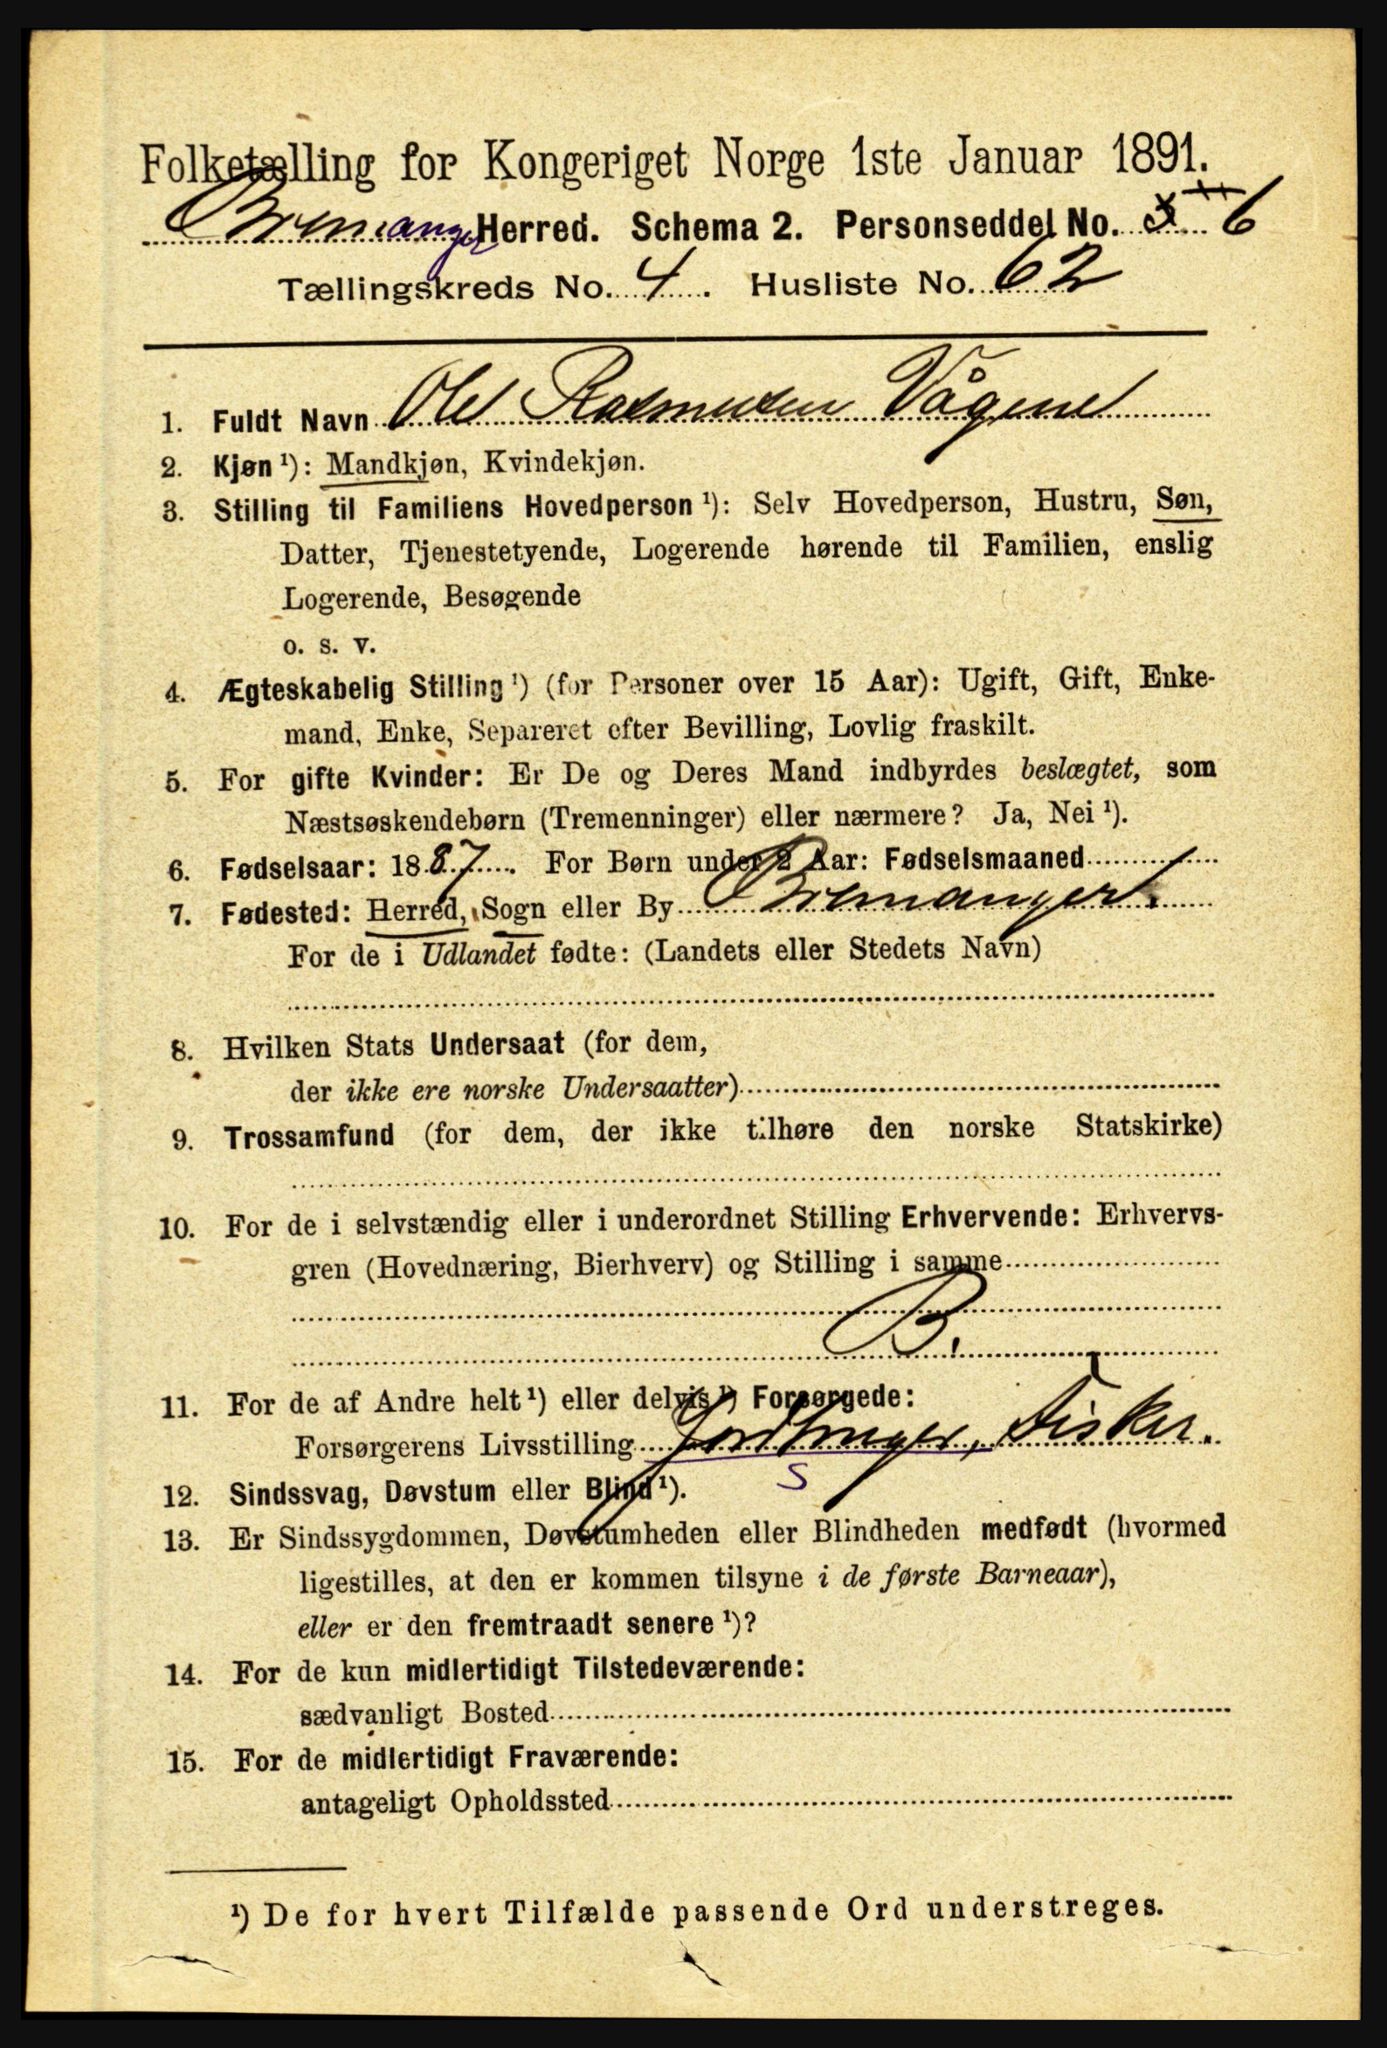 Folketælling for Kongeriget Norge 1ste Januar 1891.
Bremanger Herred. Schema 2. Personseddel No. 6
Tællingskreds No. 4. Husliste No. 62
1. Fuldt Navn Ole Rasmusen Vågene
2. Kjøn ¹): Mandkjøn, Kvindekjøn.
3. Stilling til Familiens Hovedperson ¹): Selv Hovedperson, Hustru, Søn,
Datter, Tjenestetyende, Logerende hørende til Familien, enslig
Logerende, Besøgende
o. s. v.
4. Ægteskabelig Stilling ¹) (for Personer over 15 Aar): Ugift, Gift, Enke-
mand, Enke, Separeret efter Bevilling, Lovlig fraskilt.
5. For gifte Kvinder: Er De og Deres Mand indbyrdes beslægtet, som
Næstsøskendebørn (Tremenninger) eller nærmere? Ja, Nei ¹).
6. Fødselsaar: 1887. For Børn under 2 Aar: Fødselsmaaned
7. Fødested: Herred, Sogn eller By Bremanger.
For de i Udlandet fødte: (Landets eller Stedets Navn)
8. Hvilken Stats Undersaat (for dem,
der ikke ere norske Undersaatter)
9. Trossamfund (for dem, der ikke tilhøre den norske Statskirke)
10. For de i selvstændig eller i underordnet Stilling Erhvervende: Erhvervs-
gren (Hovednæring, Bierhverv) og Stilling i samme
B.
11. For de af Andre helt ¹) eller delvis ¹) Forsørgede:
Forsørgerens Livsstilling Jordbruger, Fisker.
S
12. Sindssvag, Døvstum eller Blind ¹).
13. Er Sindssygdommen, Døvstumheden eller Blindheden medfødt (hvormed
ligestilles, at den er kommen tilsyne i de første Barneaar),
eller er den fremtraadt senere ¹)?
14. For de kun midlertidigt Tilstedeværende:
sædvanligt Bosted
15. For de midlertidigt Fraværende:
antageligt Opholdssted
¹) De for hvert Tilfælde passende Ord understreges.